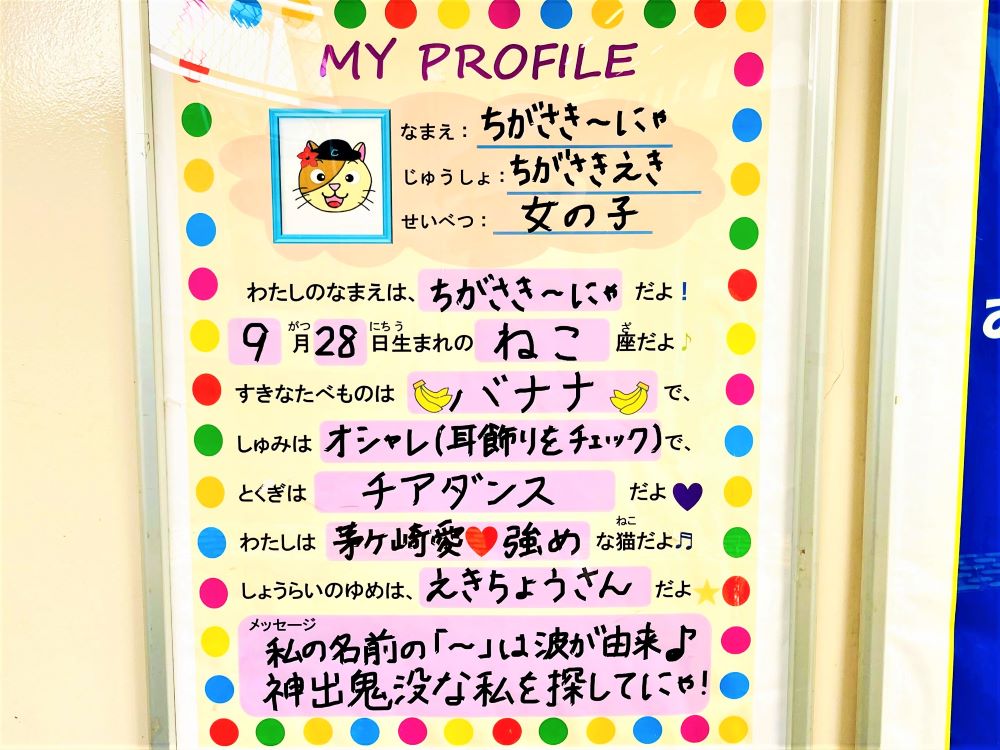 MY PROFILE
なまえ： ちがさき～にゃ
じゅうしょ： ちがさきえき
せいべつ： 女の子
わたしのなまえは、ちがさき～にゃ だよ！
9月28日生まれの ねこ 座だよ♪
がつ にちう ざ
すきなたべものは バナナ で、
しゅみは オシャレ(耳飾りをチェック)で、
とくぎは チアダンス だよ
わたしは 茅ケ崎愛♥強め な猫だよ♬
ねこ
しょうらいのゆめは、えきちょうさん だよ
メッセージ
私の名前の「～」は波が由来♪
神出鬼没な私を探してにゃ！
C